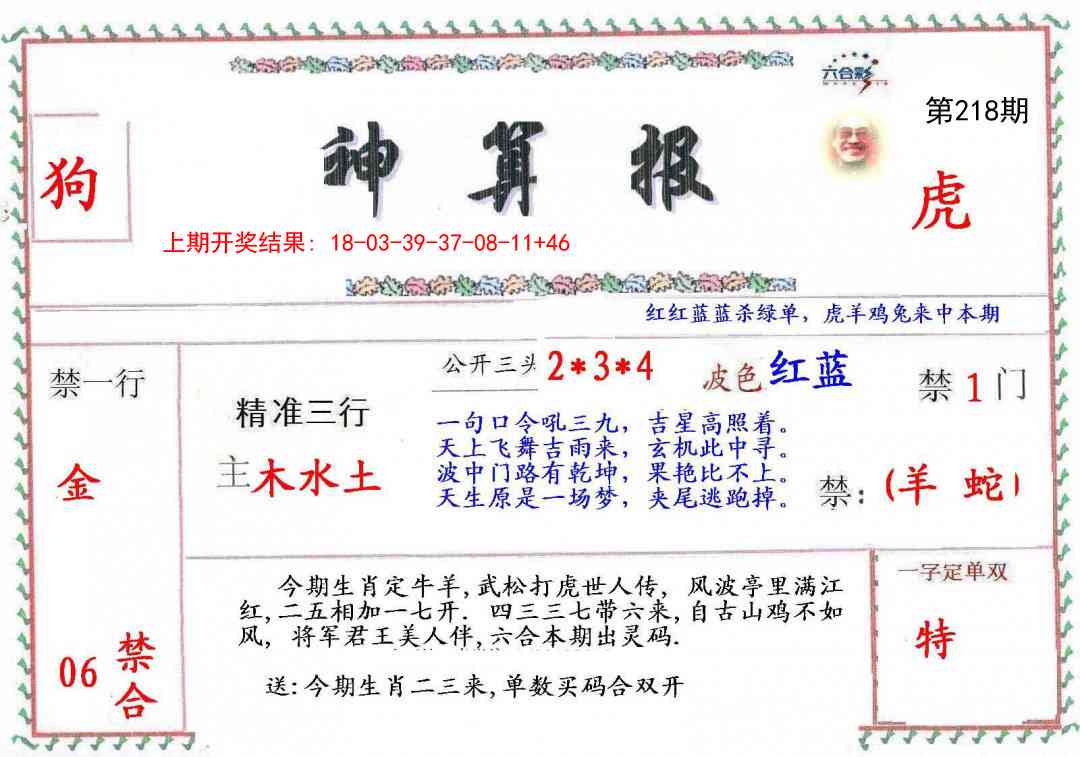 六合彩
第218期
狗
神算报
虎
上期开奖结果：18-03-39-37-08-11+46
红红蓝蓝杀绿单，虎羊鸡兔来中本期
禁一行
金
06
禁合
精准三行
主木水土
公开三头 2*3*4
波色 红蓝
禁 1 门
一句口令吼三九，吉星高照着。
天上飞舞吉雨来，玄机此中寻。
波中门路有乾坤，果艳比不上。
天生原是一场梦，夹尾逃跑掉。
禁：(羊 蛇)
今期生肖定牛羊,武松打虎世人传，风波亭里满江
红,二五相加一七开．四三三七带六来,自古山鸡不如
凤，将军君王美人伴,六合本期出灵码.
送:今期生肖二三来,单数买码合双开
一字定单双
特